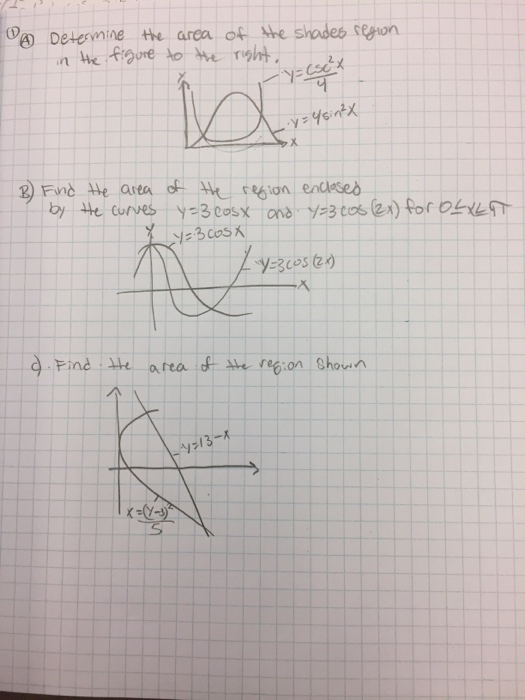 ① A) Determine the area of the shades region
in the figure to the right.
y y=csc²x/4
y=4sin²x
x
B) Find the area of the region enclosed
by the curves y=3cosx and y=3cos(2x) for 0≤x≤π
y y=3cosx
y=3cos(2x)
x
c). Find the area of the region shown
y=13-x
x=(y-3)²/5